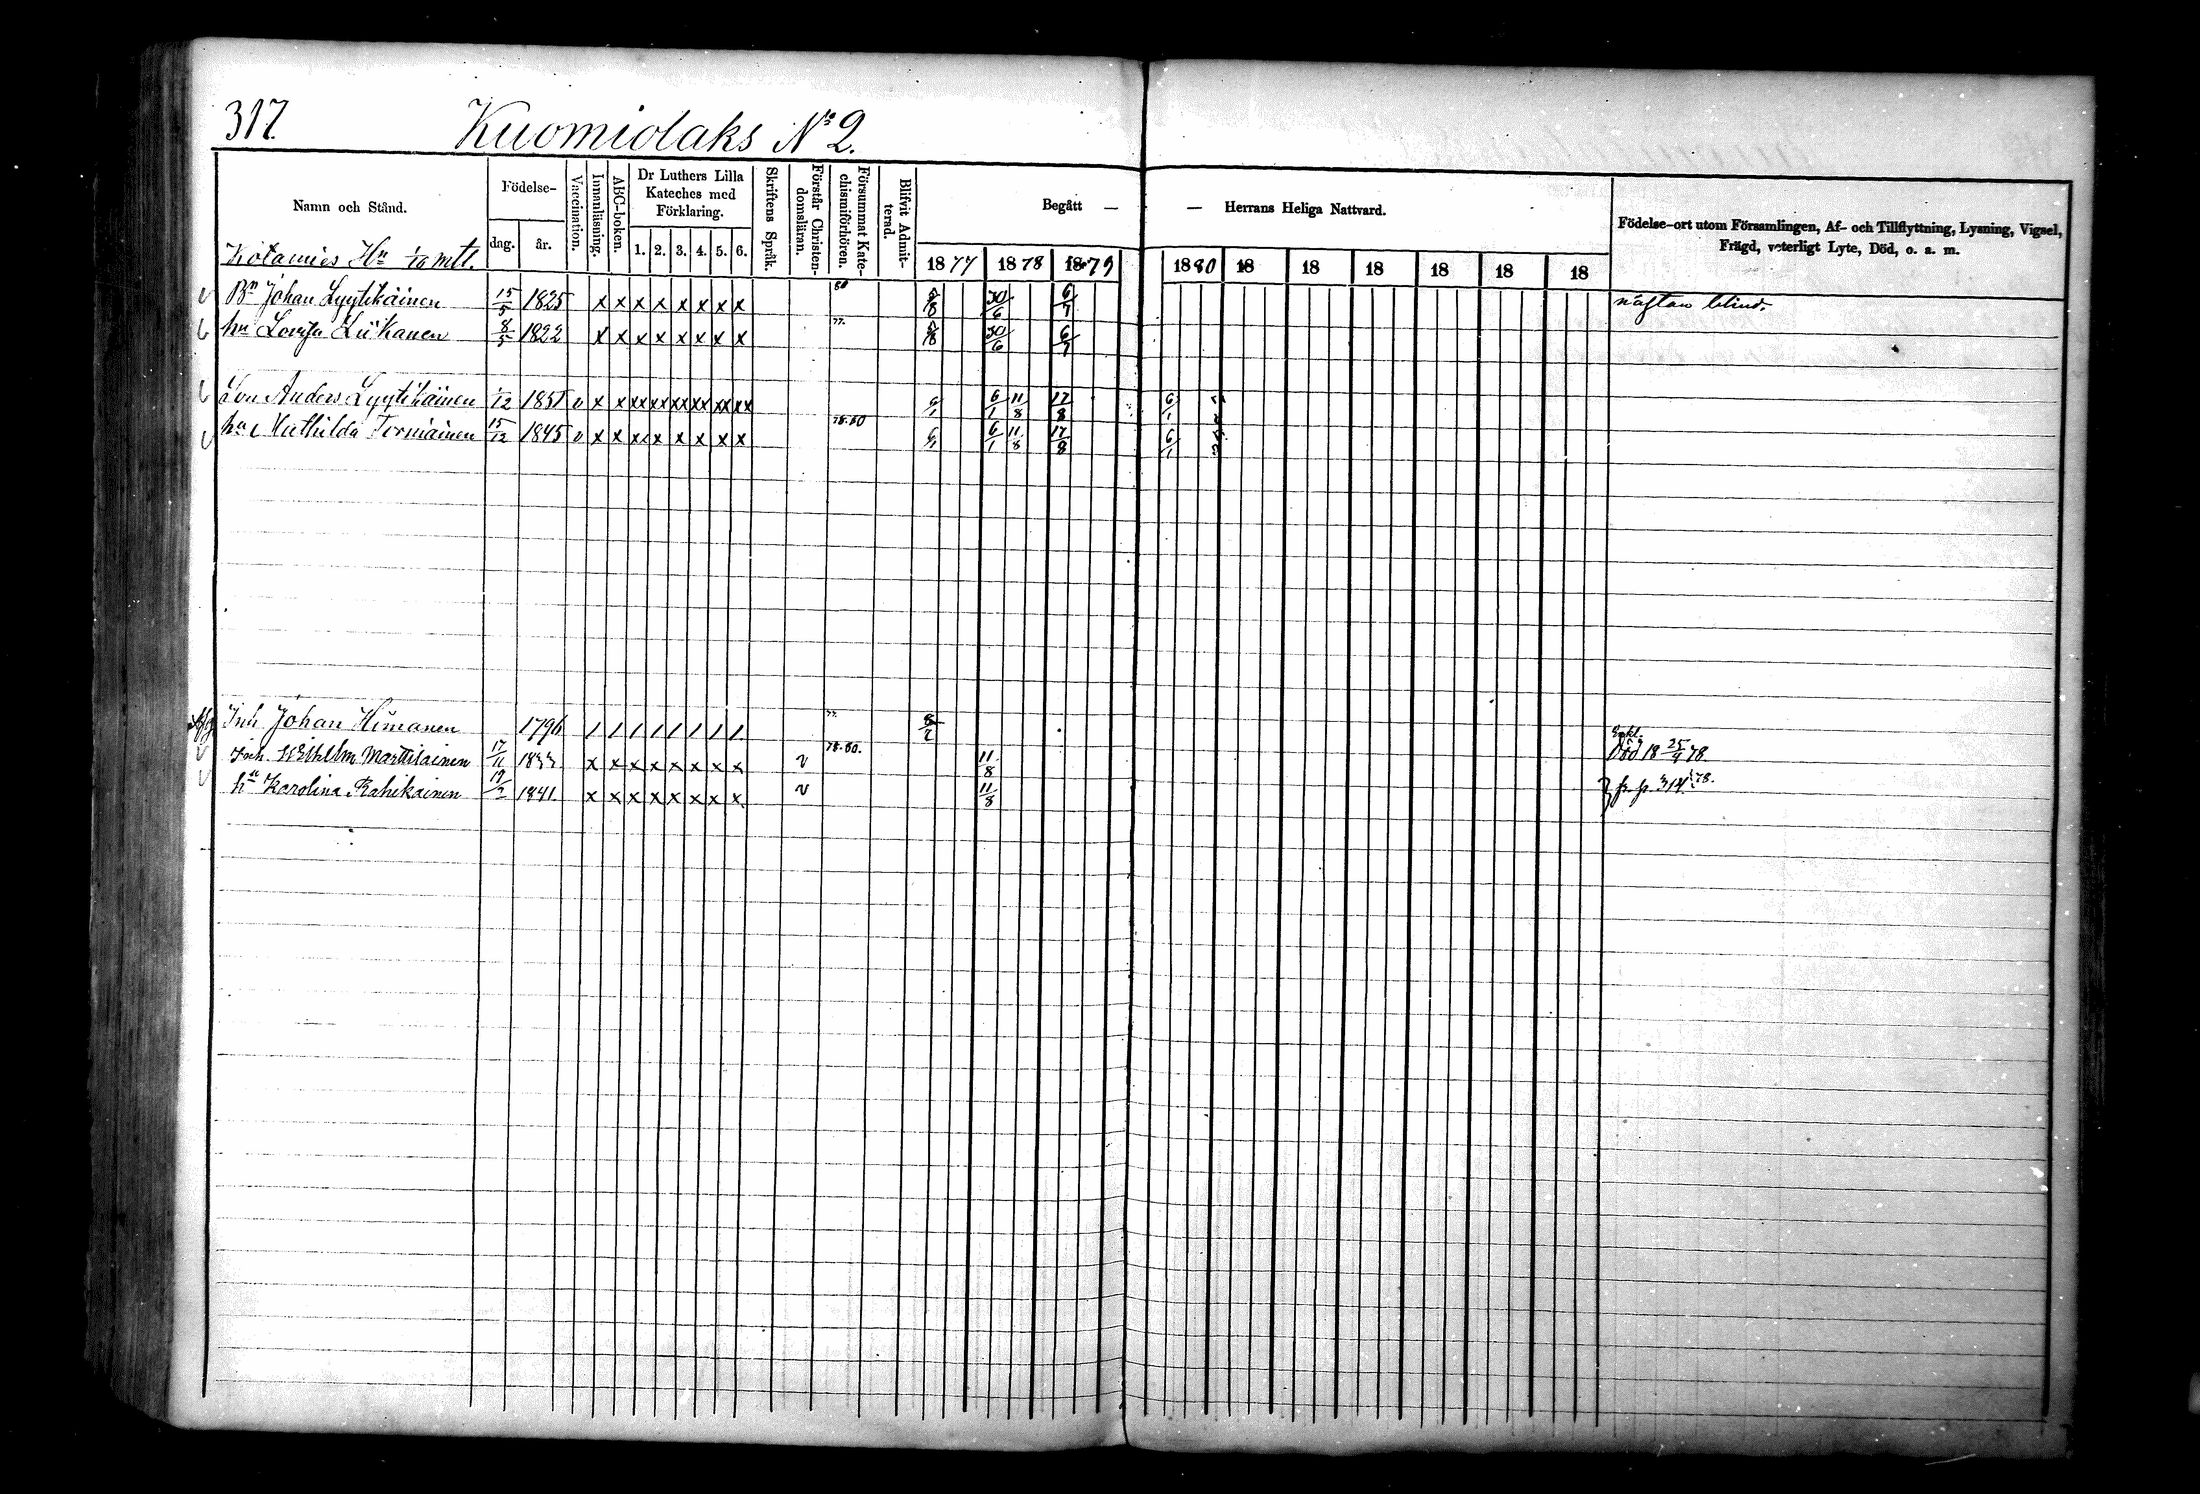 317.
Kuomiolaks No 2.
Namn och Stånd.
Födelse-
dag.
år.
Vaccination.
Innanläsning.
ABC-boken.
Dr Luthers Lilla
Kateches med
Förklaring.
1. 2. 3. 4. 5. 6.
Skriftens Språk.
Förstår Christen-
domsläran.
Försummat Kate-
chismiförhören.
Blifvit Admit-
terad.
Begått — — Herrans Heliga Nattvard.
1877 1878 1879 1880 18 18 18 18 18 18
Födelse-ort utom Församlingen, Af- och Tillflyttning, Lysning, Vigsel,
Frägd, veterligt Lyte, Död, o. a. m.
Kotamies Hn 1/10 mtl.
Bn Johan Lyytikäinen 15/5 1825 x x x x x x x x 80 30/6 6/7 nästan blind.
hu Lovisa Liikanen 8/5 1822 x x x x x x x x 77. 30/6 6/7
Son Anders Lyytikäinen 1/12 1851 v x x xx xx xx xx xx xx 6/1 6/1 11/8 17/8 6/1
hu Mathilda Torniainen 15/12 1845 v x x xx x x x x x 78.80 6/1 6/1 11/8 17/8 6/1
Inh Johan Himanen 1796 / / / / / / / / 77. Död 18 25/4 78
Inh. Wilhelm Marttilainen 17/11 1833 x x x x x x x x v 78.80. 11/8
hu Karolina Rahikainen 19/2 1841. x x x x x x x x v 11/8 fr. p. 314. 78.